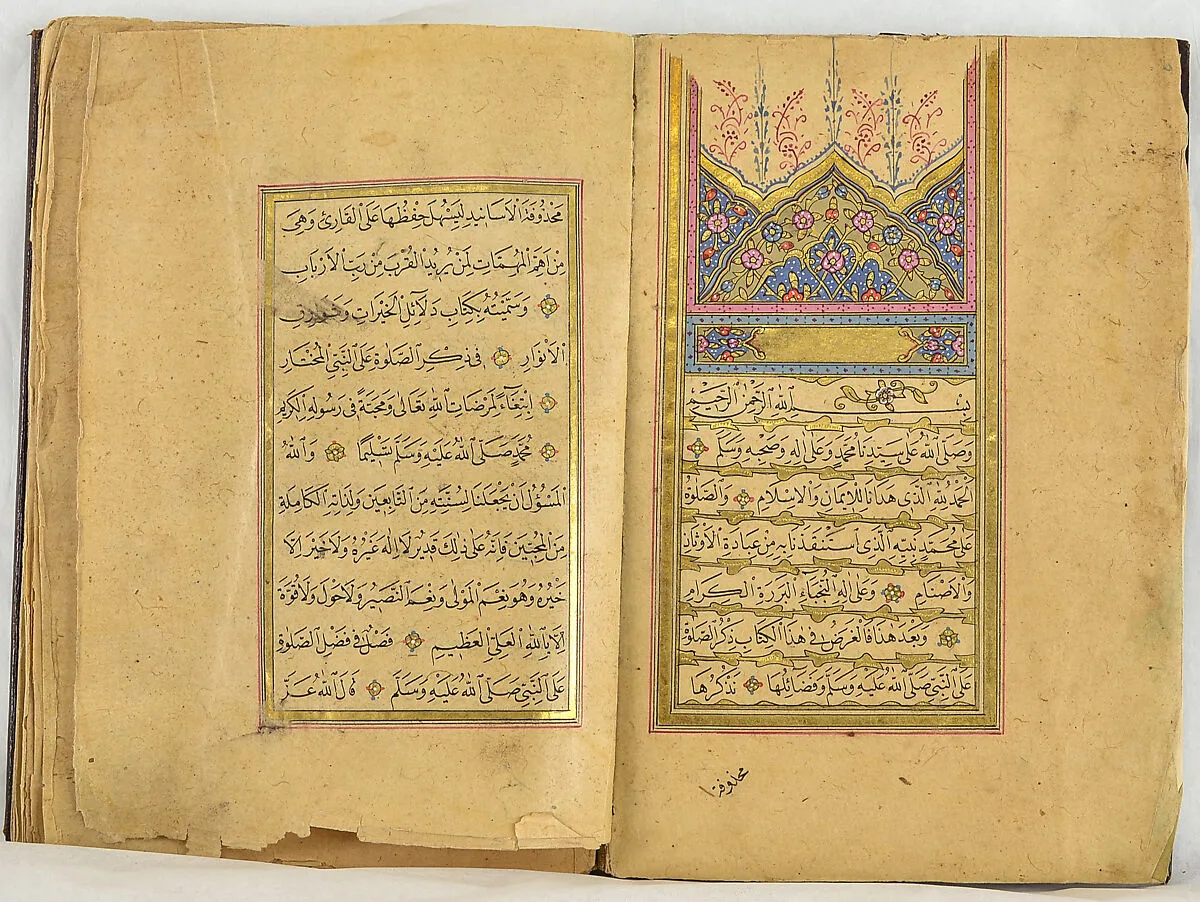 بِسْمِ اللهِ الرَّحْمٰنِ الرَّحِيمِ
وَصَلَّى اللهُ عَلَى سَيِّدِنَا مُحَمَّدٍ وَعَلَى اٰلِهِ وَصَحْبِهِ وَسَلَّمَ
اَلْحَمْدُ لِلّٰهِ الَّذِى هَدَانَا لِلْاِيمَانِ وَالْاِسْلَامِ وَالصَّلٰوةُ
عَلٰى مُحَمَّدٍ نَبِيِّهِ الَّذِى اسْتَنْقَذَنَا بِهِ مِنْ عِبَادَةِ الْاَوْثَانِ
وَالْاَصْنَامِ وَعَلٰى اٰلِهِ النُّجَبَاءِ الْبَرَرَةِ الْكِرَامِ
وَبَعْدَ هٰذَا فَالْغَرَضُ فِى هٰذَا الْكِتَابِ ذِكْرُ الصَّلٰوةِ
عَلَى النَّبِىِّ صَلَّى اللهُ عَلَيْهِ وَسَلَّمَ وَفَضَائِلُهَا نَذْكُرُهَا
محذوفة
مَحْذُوفَةَ الْاَسَانِيدِ لِيَسْهُلَ حِفْظُهَا عَلَى الْقَارِئِ وَهِىَ
مِنْ اَهَمِّ الْمُهِمَّاتِ لِمَنْ يُرِيدُ الْقُرْبَ مِنْ رَبِّ الْاَرْبَابِ
وَسَمَّيْتُهُ بِكِتَابِ دَلَائِلِ الْخَيْرَاتِ وَشَوَارِقِ
الْاَنْوَارِ فِى ذِكْرِ الصَّلٰوةِ عَلَى النَّبِىِّ الْمُخْتَارِ
اِبْتِغَاءً لِمَرْضَاتِ اللهِ تَعَالٰى وَمَحَبَّةً فِى رَسُولِهِ الْكَرِيمِ
مُحَمَّدٍ صَلَّى اللهُ عَلَيْهِ وَسَلَّمَ تَسْلِيمًا وَاللهُ
الْمَسْؤُلُ اَنْ يَجْعَلَنَا لِسُنَّتِهِ مِنَ التَّابِعِينَ وَلِذَاتِهِ الْكَامِلَةِ
مِنَ الْمُحِبِّينَ فَاِنَّهُ عَلٰى ذٰلِكَ قَدِيرٌ لَا اِلٰهَ غَيْرُهُ وَلَا خَيْرَ اِلَّا
خَيْرُهُ وَهُوَ نِعْمَ الْمَوْلٰى وَنِعْمَ النَّصِيرُ وَلَا حَوْلَ وَلَا قُوَّةَ
اِلَّا بِاللهِ الْعَلِىِّ الْعَظِيمِ فَصْلٌ فِى فَضْلِ الصَّلٰوةِ
عَلَى النَّبِىِّ صَلَّى اللهُ عَلَيْهِ وَسَلَّمَ قَالَ اللهُ عَزَّ